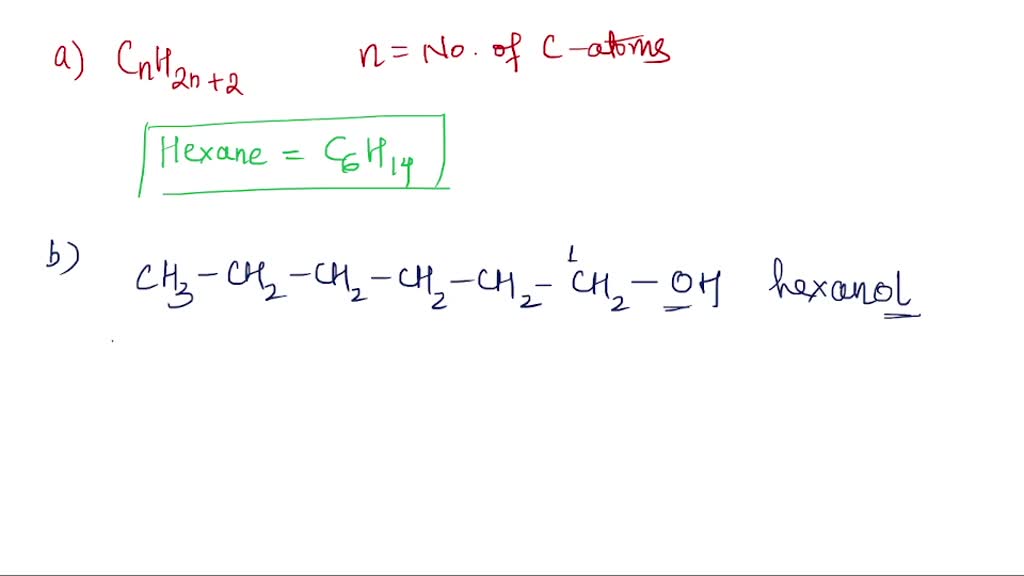 a) CnH2n+2 n = No. of C-atoms
Hexane = C6H14
b) CH3-CH2-CH2-CH2-CH2-CH2-OH hexanol
1